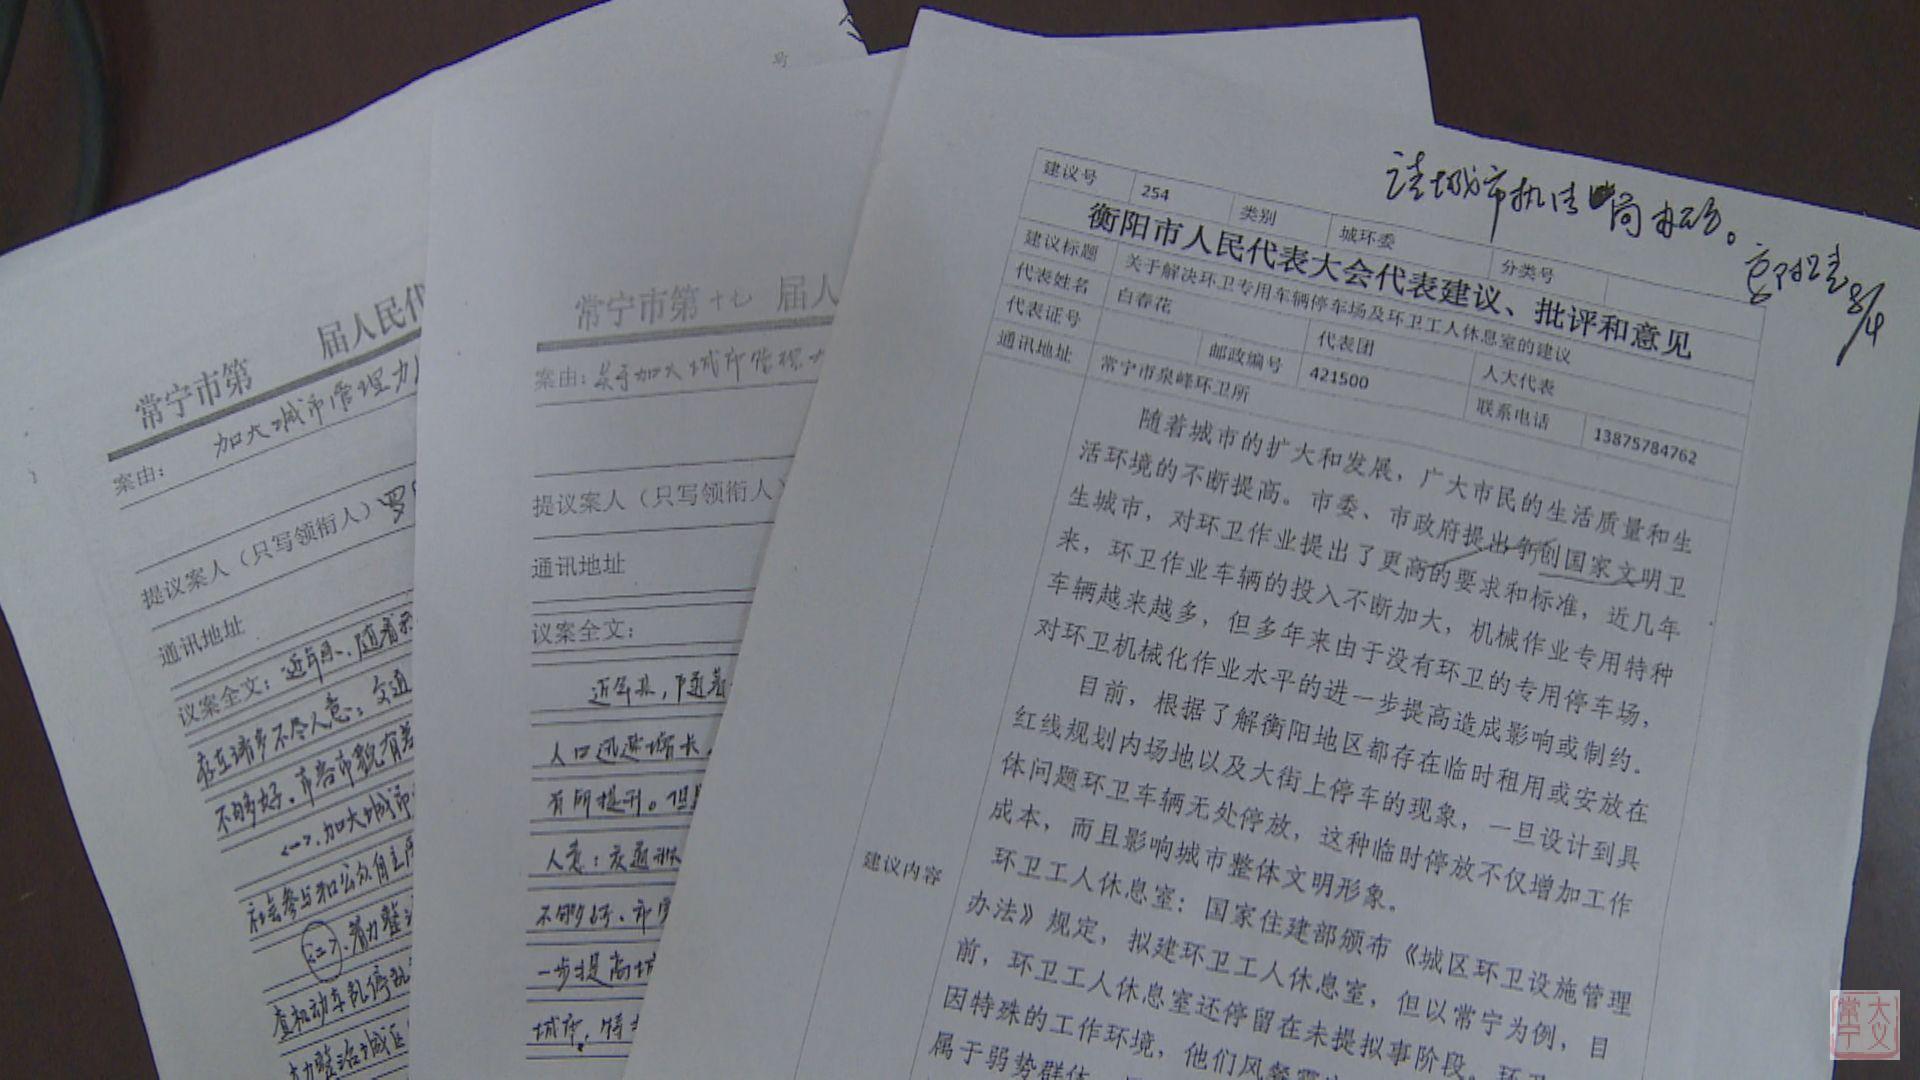 常宁市第 届人民代
案由: 加大城市管理力
提议案人（只写领衔人）罗
通讯地址
议案全文: 近年来、随着
不够好、市容市貌有
<一>.加大城市
社会参与和公众自主
<二>.着力整
查机动车乱停乱
常宁市第十七届人
案由: 关于加大城市管理
提议案人（只写领衔人）
通讯地址
议案全文:
近年来，随着
人口迅速增长
有所提升。但
人意: 交通
不够好、市
一步提高城
城市，特
请城市执法局办理。
8/4
建议号 254 类别 城环委 分类号
衡阳市人民代表大会代表建议、批评和意见
建议标题 关于解决环卫专用车辆停车场及环卫工人休息室的建议
代表姓名 白春花 代表团 人大代表
代表证号 邮政编号 421500 联系电话 13875784762
通讯地址 常宁市泉峰环卫所
建议内容
随着城市的扩大和发展，广大市民的生活质量和生
活环境的不断提高。市委、市政府提出争创国家文明卫
生城市，对环卫作业提出了更高的要求和标准，近几年
来，环卫作业车辆的投入不断加大，机械作业专用特种
车辆越来越多，但多年来由于没有环卫的专用停车场，
对环卫机械化作业水平的进一步提高造成影响或制约。
目前，根据了解衡阳地区都存在临时租用或安放在
红线规划内场地以及大街上停车的现象，一旦设计到具
体问题环卫车辆无处停放，这种临时停放不仅增加工作
成本，而且影响城市整体文明形象。
环卫工人休息室: 国家住建部颁布《城区环卫设施管理
办法》规定，拟建环卫工人休息室，但以常宁为例，目
前，环卫工人休息室还停留在未提拟事阶段。环卫
因特殊的工作环境，他们风餐露
属于弱势群体
大义常宁